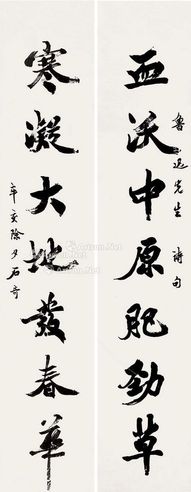 血沃中原肥勁草
魯迅先生詩句
寒凝大地發春華
辛亥除夕石奇